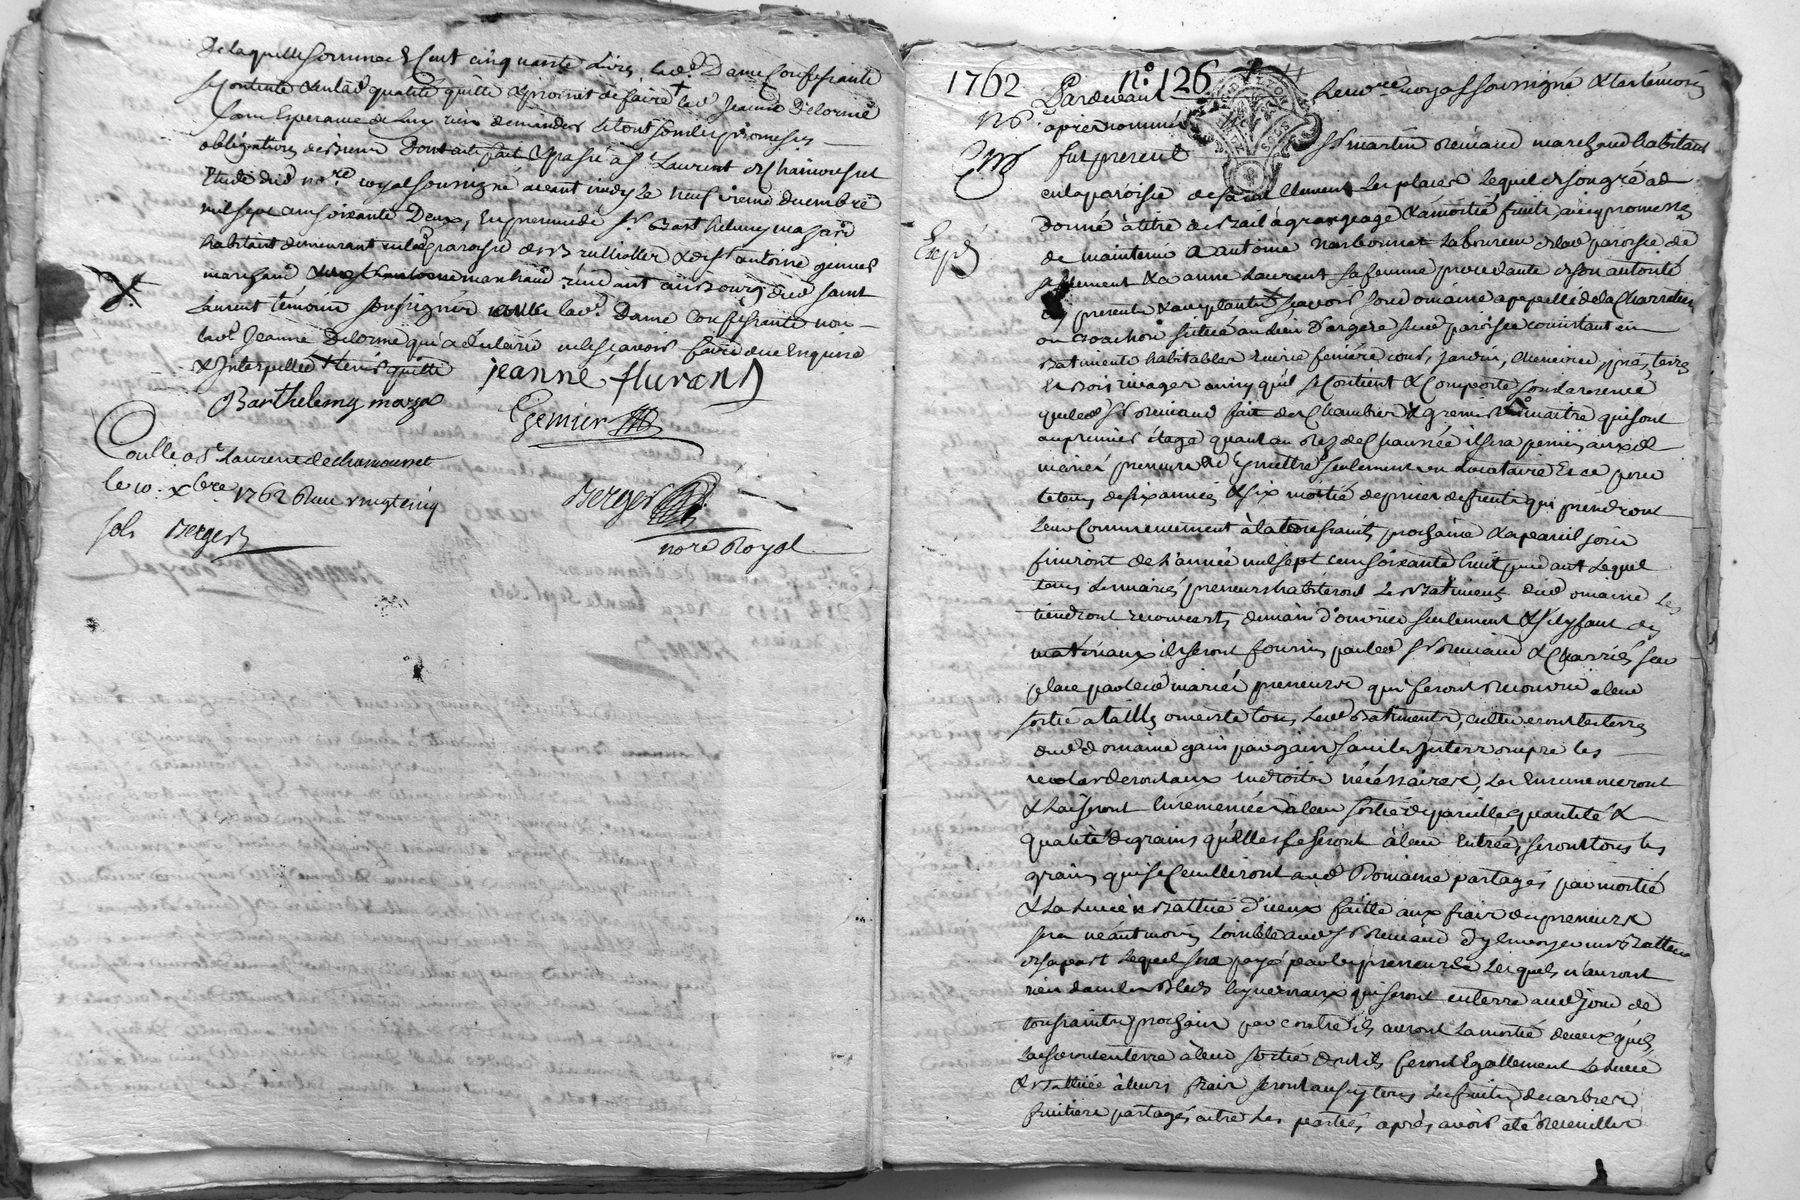 De laquelle somme de Cent cinquante Livres, lad.e Dame Confessante
se Contente & en lad. qualité quitte & promet de faire lad. Jeanne Delorme
sans Esperance de luy rien demander le tout sous les promesses
obligations de biens Dont acte fait & passé à St Laurent de Chamousset
Etude dud. no.re royal soussigné avant midy Le neuf.vieme decembre
mil sept cent soixante Deux, En presence de Sr. Barthelemy mazard
habitant demeurant en lad. paroisse de & de Sr antoine gemier
marchand residant au Bourg dud. saint
Laurent témoins soussignés avec lad. Dame Confessante non
lad. Jeanne Delorme qui a déclaré ne le sçavoir faire de ce Enquise
& Interpellée
jeanne flurand
Barthelemy mazar
Gemier
Conllé a St Laurent de chamousset
le 10 xbre 1762 Reçu vingt cinq
sols Berger
Berger
nore Royal
1762 no. 126
Pardevant Le no.re royal soussigné & les témoins
après nommés
fut present Sr martin Remand marchand habitant
en la paroisse de saint Clement Les places Lequel de son gré a
donné à titre de Bail à grangeage & à moitié fruits ainsy promet
de maintenir A antoine narbonnet Laboureur de lad. paroisse de
Expé
& a anne Laurent sa femme procedante de son autorité
present & acceptants sçavoir son domaine appellé de la Charretier
ou Crochon situé au lieu d'argere sud. paroisse consistant en
Batiments habitables Ecurie feniere cour, jardin, cheneviere, prés, terres
Et Bois ainsy qu'il se Contient & Comporte sous la reserve
que led. Sr Remand fait des Chambres & grenier de maitre qui sont
au premier étage quant au Rez de Chaussée il sera permis auxd.
mariés preneurs d'y mettre seulement un Locataire Et ce pour
le tems de six années & six moitié de prises de fruits qui prendront
leur Commencement à la toussaints prochaine & a pareil jour
finiront de l'année mil sept cent soixante huit pendant Lequel
tems Les mariés preneurs habiteront Les Batiments dud. Domaine Les
tiendront recouverts de main d'ouvrier seulement & s'il y faut des
matériaux ils seront fournis par led. Sr Remand & Charriés sur
place par lesd. mariés preneurs qui seront Recouvrir a leur
sortie a taille ouverte tous lesd. Batiments, cultiveront les terres
dud. domaine gain par gain sans les Interrompre les
aux Endroits nécéssaires, Les Ensemenceront
& Laisseront Ensemencées à leur sortie de pareille quantité &
qualité de grains qu'elles se seront à leur Entrée, seront tous les
grains qui se Ceuilleront aud. Domaine partagés par moitié
& La Levée & Battue d'iceux faitte aux frais des preneurs
sera néantmoins Loisible aud. Sr Remand d'y Envoyer un Batteur
de sa part Lequel sera payé par les preneurs Lesquels n'auront
rien dans les Bleds hyvernaux qui seront en terre aud. jour de
toussaints prochain par contre ils auront La moitié de ceux qu'ils
Laisseront en terre à leur sortie dont ils feront Egallement La Levée
& Battuë à leurs frais seront aussy tous Les fruits des arbres
fruitiers partagés entre Les parties après avoir eté Receuillis